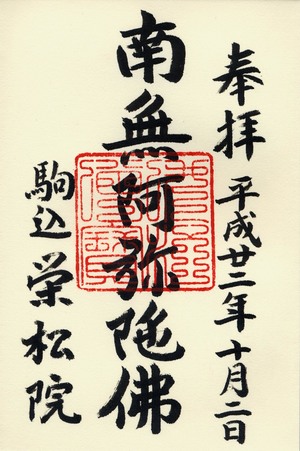 奉拝 平成廿二年十月二日
南無阿弥陀佛
駒込 栄松院